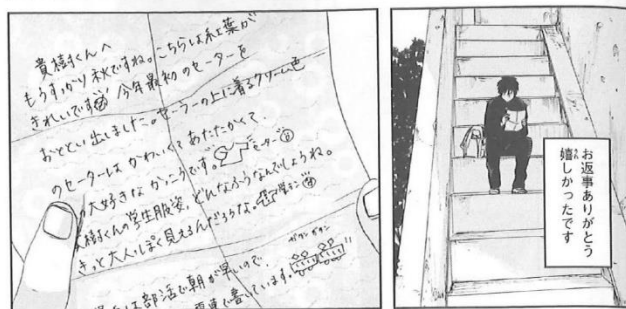 お返事ありがとう
嬉しかったです
貴樹くんへ
もうすっかり秋ですね。こちらは紅葉が
きれいです 今年最初のセーターを
おととい出しました。セーラーの上に着るクリーム色
のセーターは かわいくて あたたかくて、
大好きな かっこうです。 セーター
樹くんの学生服姿、どんなふうなんでしょうね。
きっと大人っぽく見えるんだろうな。 学ラン
は部活で朝が早いので、
電車で書いています。